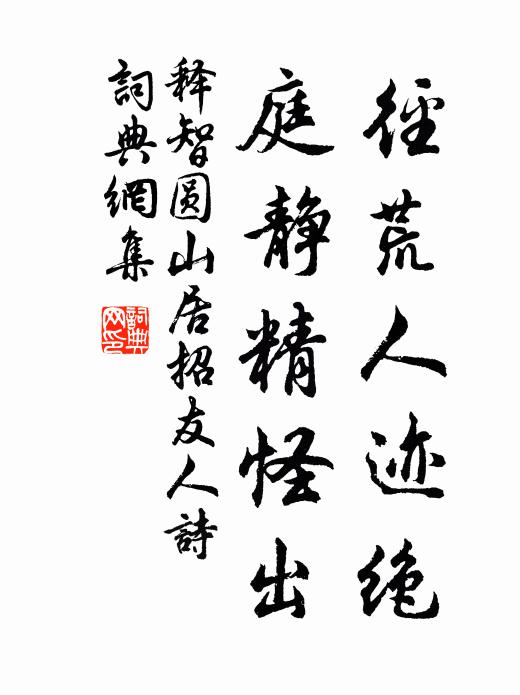 徑荒人迹绝
庭静精怪出
释智圆山居招友人詩
詞典網集
詞典网印